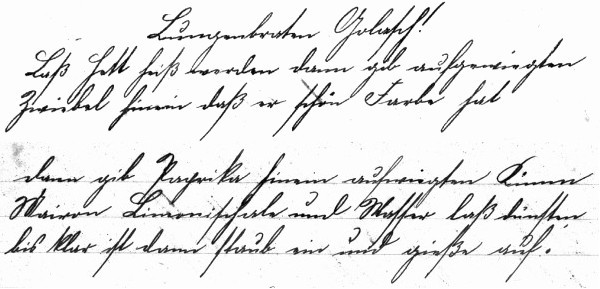 Lungenbraten Golasch!
Laß Fett heiß werden dann gib aufgewiegten
Zwiebel hinein daß er schön Farbe hat
dann gib Paprika hinein aufwiegten Kümm
Mairon Limonischale und Wasser laß dünsten
bis klar ist dann staub ein und gieße auf.